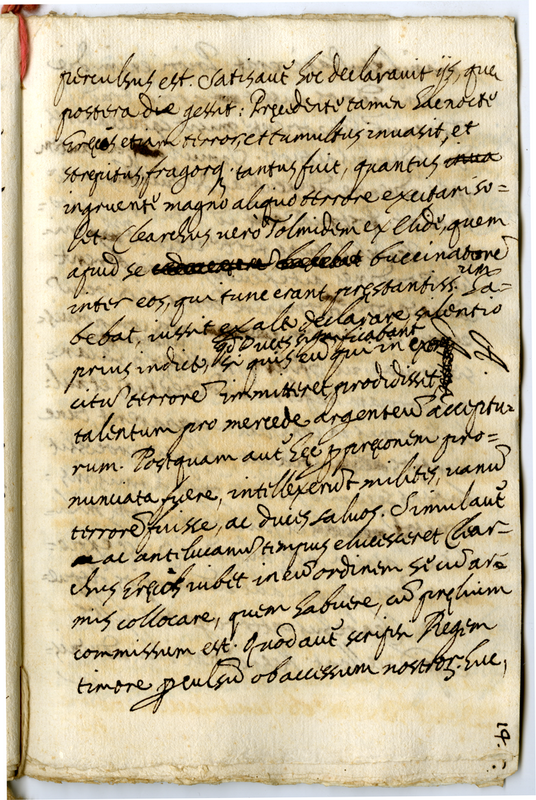 perculsus est. Satis autē hoc declaravit ijs, que
postera die gessit: Precedente tamen hac nocte
Grecos etiam terror, et tumultus invasit, et
strepitus, fragorq. tantus fuit, quantus
ingruente magno aliquo terrore excitari so=
let. Clearchus vero Tolmidem ex Elide, quem
apud se buccinatorē
inter eos, qui tunc erant prestantiss.um Ha=
bebat, iussit ex alto declarare silentio
prius indicto, ad Duces significabant
Se quis eū qui in exer
citū terrorē immitteret, prodidisset,
talentum pro mercede argenteū acceptu=
rum. Postquam autē hec p preconem pro=
nunciata fuere, intellexerūt milites, vanū
terrorē fuisse, ac duces salvos. Simul autē
ac antelucanū tempus elucesceret Clear=
chus Grecos iubet in eū ordinem se cū ar=
mis collocare, quem habuere, cū prelium
commissum est. Quod autē scripsi Regem
timore perculsū ob accessum nostrorū huc,
19.